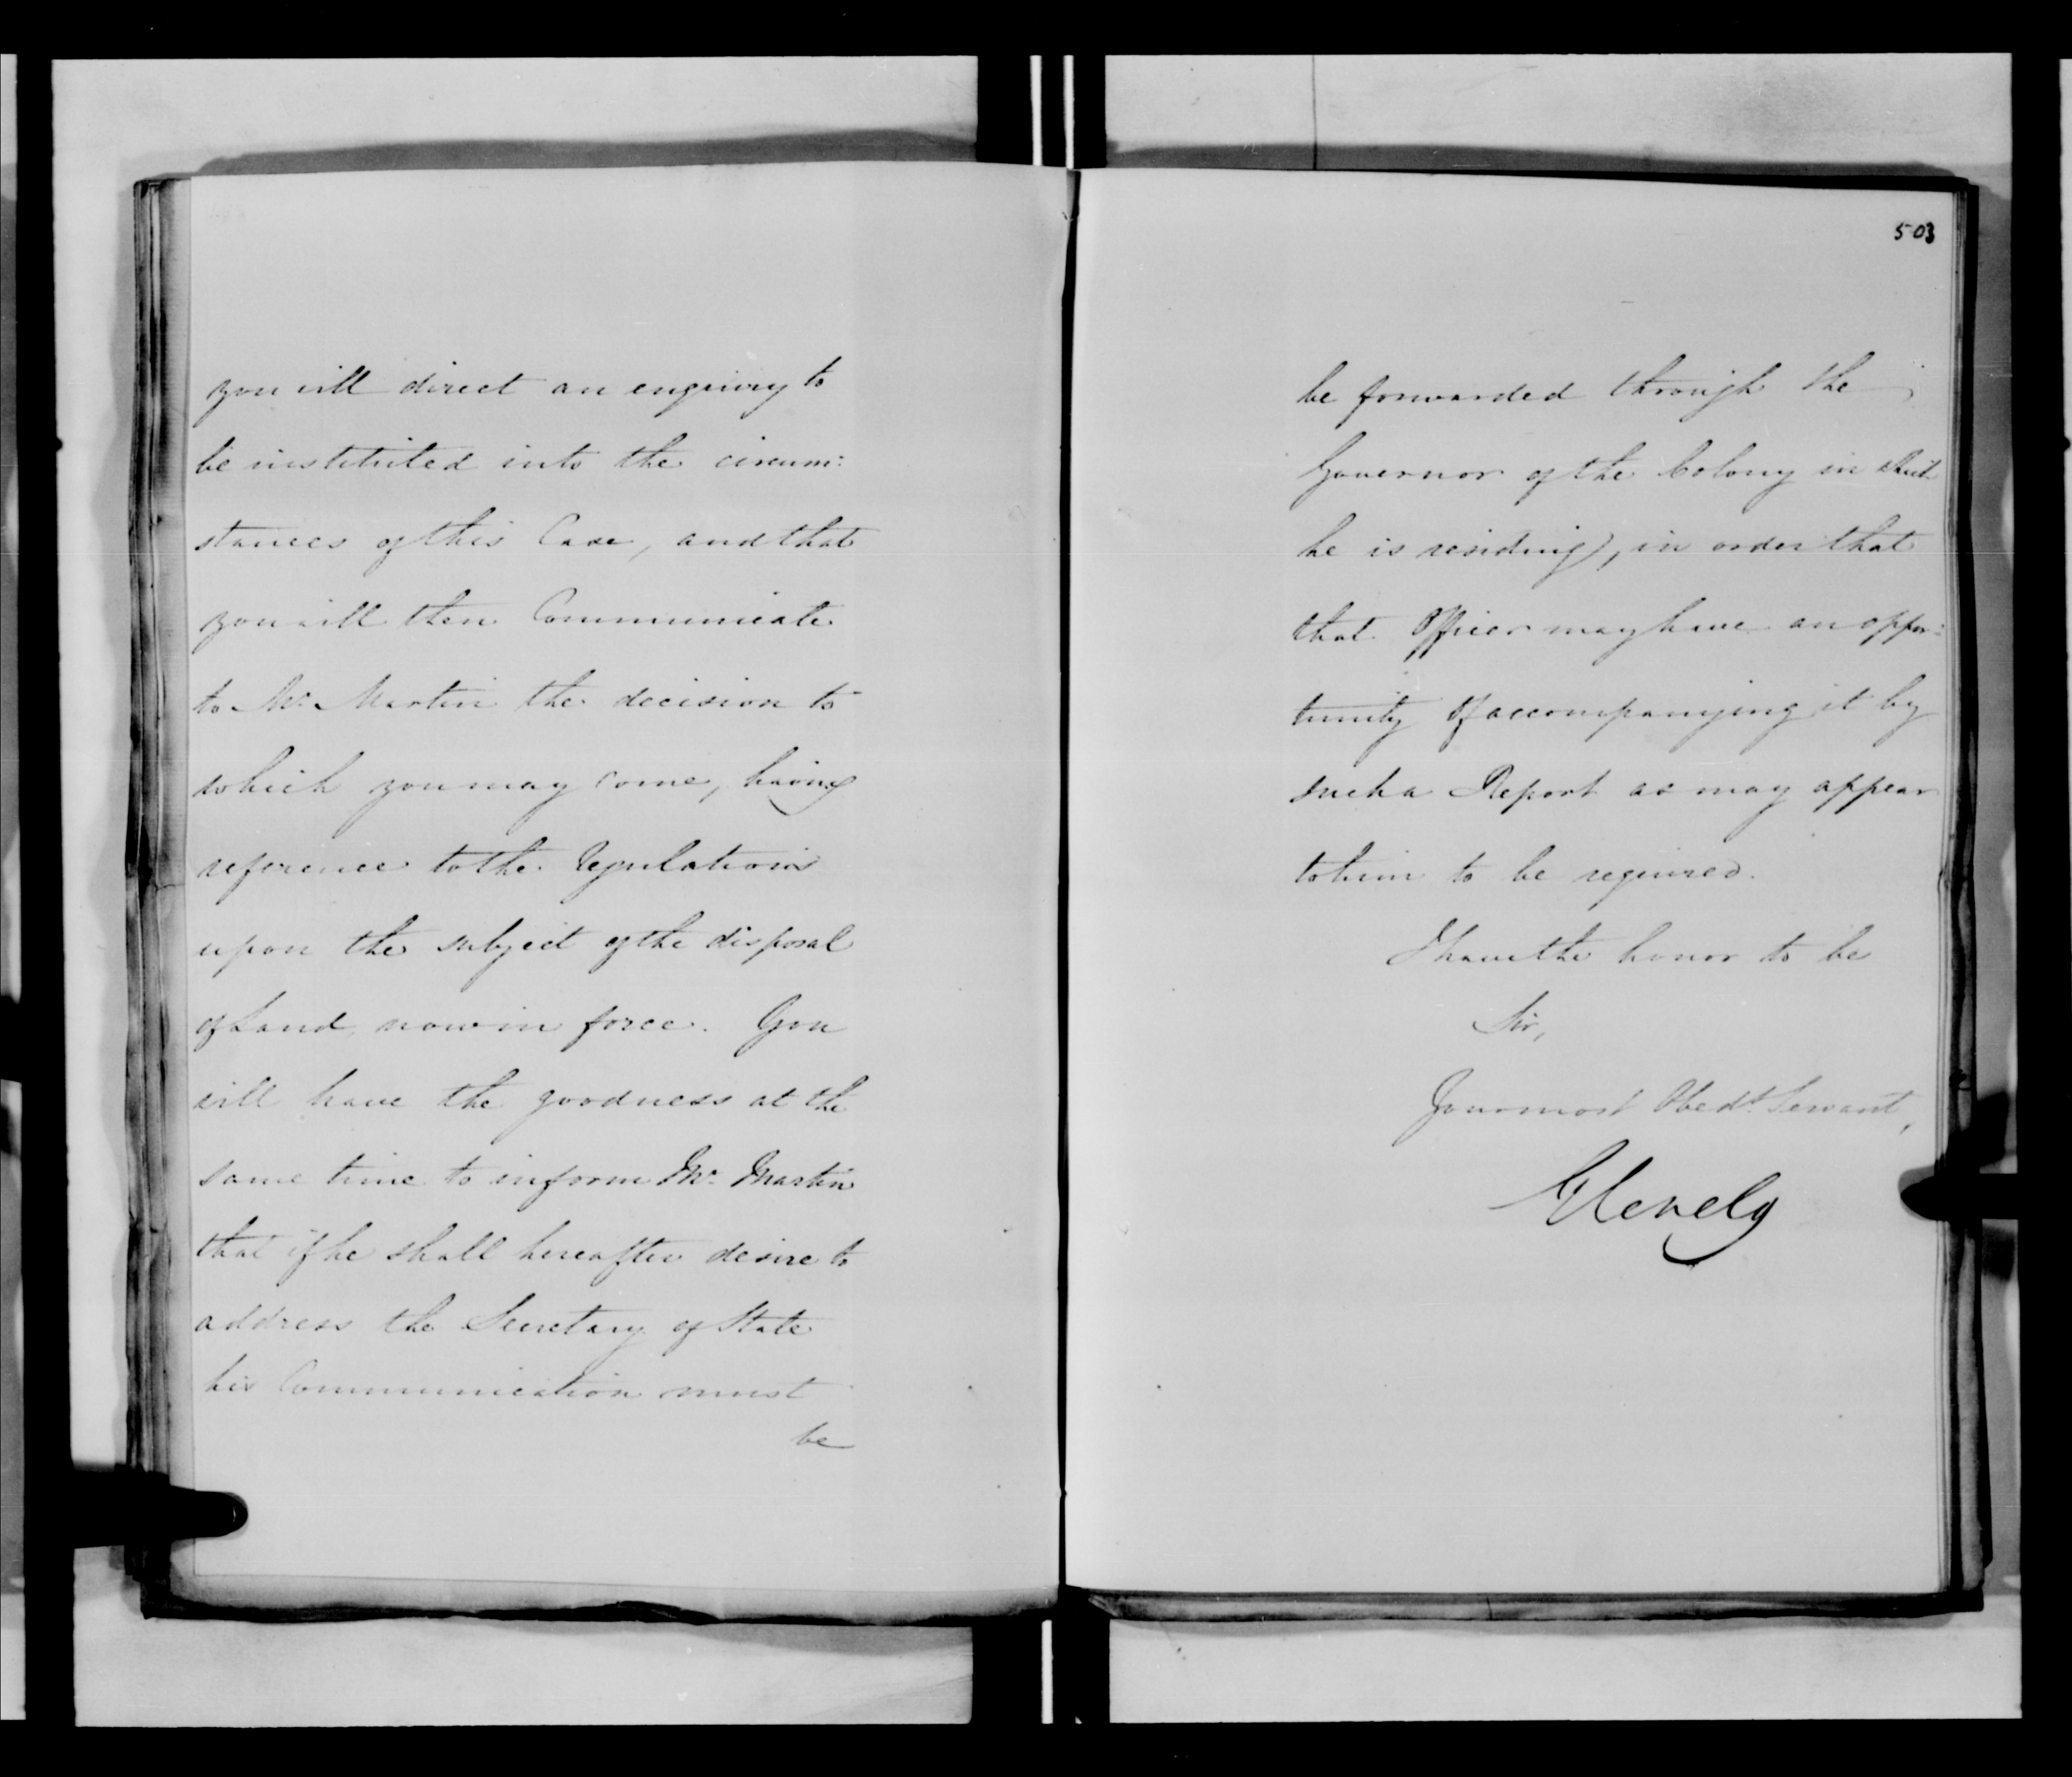 you will direct an enquiry to
be instituted into the circum:
stances of this Case, and that
you will then Communicate
to Mr. Martin the decision to
which you may come, having
reference to the Regulations
upon the subject of the disposal
of Land now in force. You
will have the goodness at the
same time to inform Mr. Martin
that if he shall hereafter desire to
address the Secretary of State
his Communication must
be
503
be forwarded through the
Governor of the Colony in which
he is residing, in order that
that Officer may have an oppor:
tunity of accompanying it by
such a Report as may appear
to him to be required.
I have the honor to be
Sir,
Your most Obedt. Servant,
Glenelg